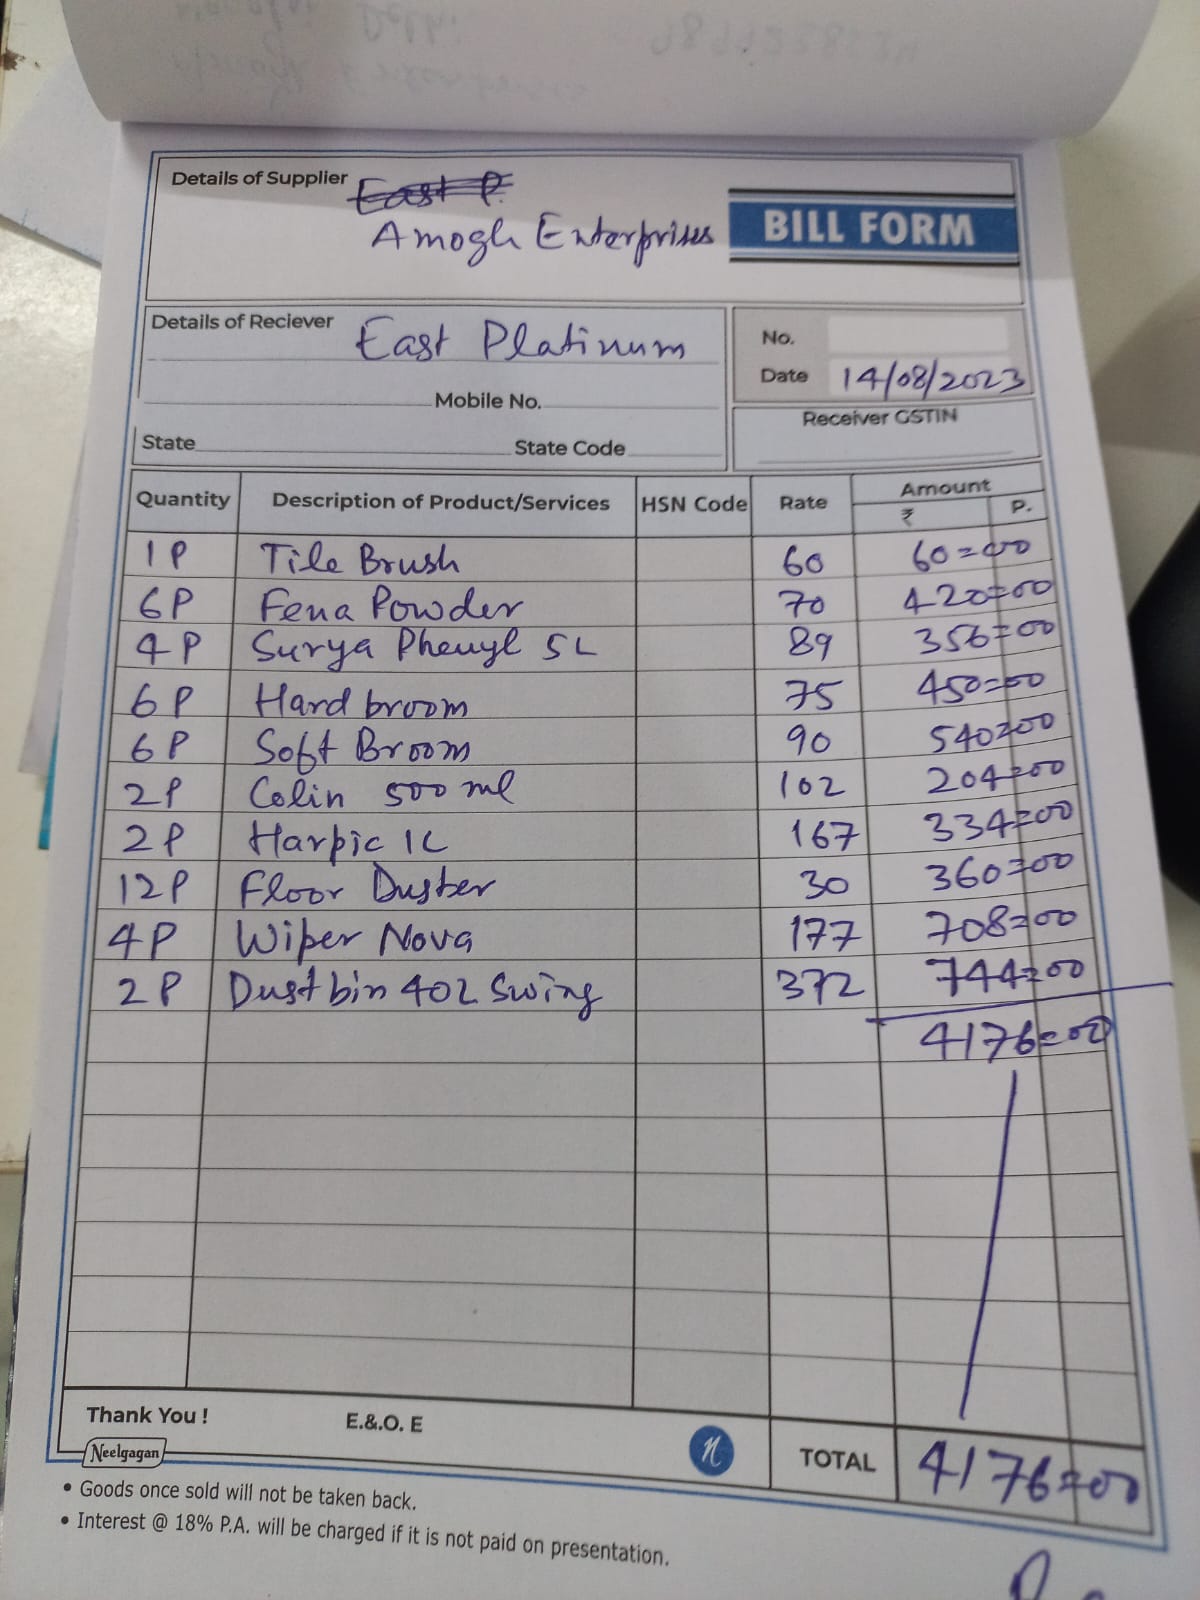 Details of Supplier
Amogh Enterprises
BILL FORM
Details of Reciever East Platinum
No.
Date 14/08/2023
Mobile No.
Receiver GSTIN
State State Code
Quantity Description of Product/Services HSN Code Rate Amount
₹ P.
1P Tile Brush 60 60=00
6P Fena Powder 70 420=00
4P Surya Phenyl 5L 89 356=00
6P Hard broom 75 450=00
6P Soft Broom 90 540=00
2P Colin 500 ml 102 204=00
2P Harpic 1L 167 334=00
12P Floor Duster 30 360=00
4P Wiper Nova 177 708=00
2P Dustbin 402 Swing 372 744=00
4176=00
Thank You ! E.&.O. E
Neelgagan n TOTAL 4176=00
• Goods once sold will not be taken back.
• Interest @ 18% P.A. will be charged if it is not paid on presentation.